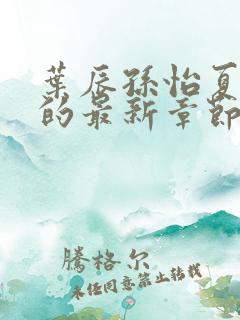 葉辰孫怡夏
的最新章節
騰格尔
未任同意禁止转载